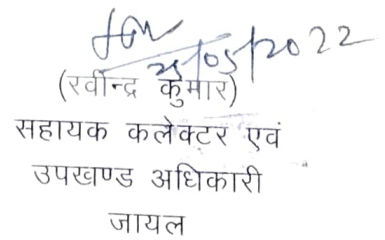 25/05/2022
(रवीन्द्र कुमार)
सहायक कलेक्टर एवं
उपखण्ड अधिकारी
जायल